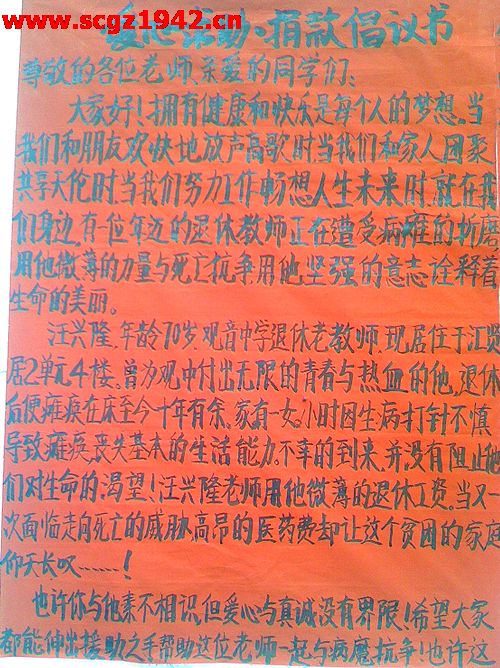 www.scgz1942.cn
爱心活动、捐款倡议书
尊敬的各位老师、亲爱的同学们:
大家好!拥有健康和快乐是每个人的梦想。当
我们和朋友欢快地放声高歌时当我们和家人团聚
共享天伦时当我们努力工作畅想人生未来时,就在我
们身边,有一位年迈的退休教师正在遭受病魔的折磨
用他微薄的力量与死亡抗争用他坚强的意志诠释着
生命的美丽。
汪兴隆,年龄70岁观音中学退休老教师,现居住于汇贤
居2单元4楼。曾为观中付出无限的青春与热血的他,退休
后便瘫痪在床至今十年有余。家有一女。小时因生病打针不慎
导致瘫痪,丧失基本的生活能力。不幸的到来,并没有阻止他
们对生命的渴望!汪兴隆老师用他微薄的退休工资。当又一
次面临走向死亡的威胁,高昂的医药费却让这个贫困的家庭
仰天长叹……!
也许你与他素不相识,但爱心与真诚没有界限!希望大家
都能伸出援助之手帮助这位老师一起与病魔抗争!也许这